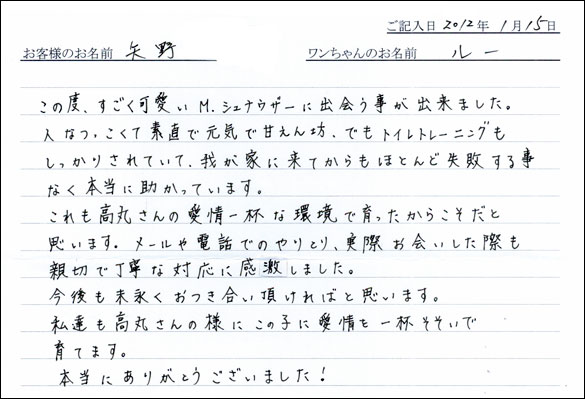 ご記入日 2012年 1月 15日
お客様のお名前 矢野 ワンちゃんのお名前 ルー
この度、すごく可愛いM.シュナウザーに出会う事が出来ました。
人なつっこくて素直で元気で甘えん坊、でもトイレトレーニングも
しっかりされていて、我が家に来てからもほとんど失敗する事
なく本当に助かっています。
これも高丸さんの愛情一杯な環境で育ったからこそだと
思います。メールや電話でのやりとり、実際お会いした際も
親切で丁寧な対応に感激しました。
今後も末永くおつき合い頂ければと思います。
私達も高丸さんの様にこの子に愛情を一杯そそいで
育てます。
本当にありがとうございました!